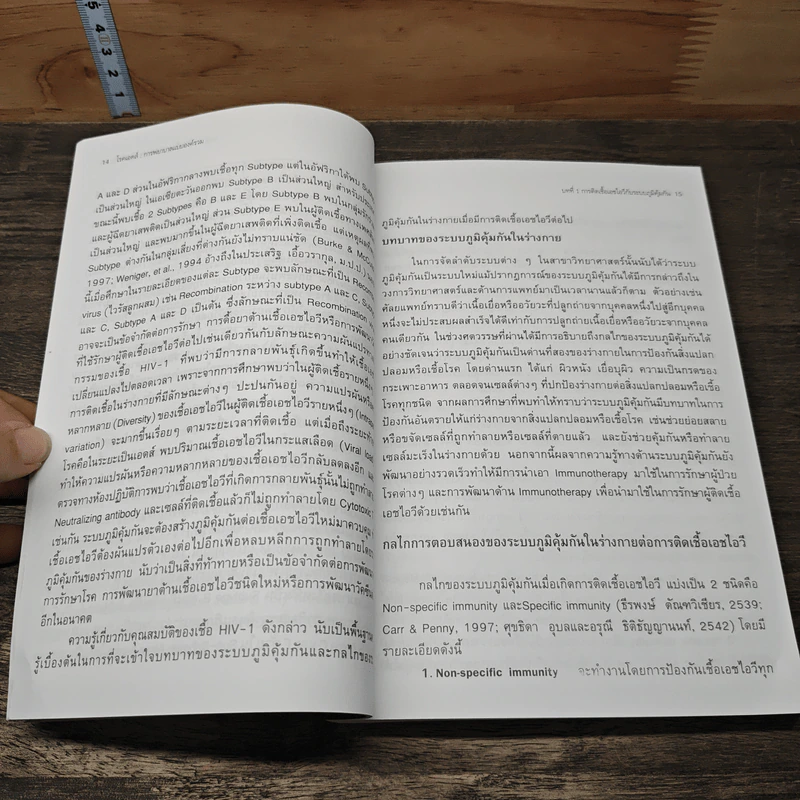 5 4 3 2 1
14 โรคเอดส์ : การพยาบาลแบบองค์รวม
A และ D ส่วนในอัฟริกากลางพบเชื้อทุก Subtype แต่ในอัฟริกาใต้พบ
เป็นส่วนใหญ่ ในเอเชียตะวันออกพบ Subtype B เป็นส่วนใหญ่ สำหรับ
ขณะนี้พบเชื้อ 2 Subtypes คือ B และ E โดย Subtype B พบในกลุ่ม
และผู้ฉีดยาเสพติดเป็นส่วนใหญ่ ส่วน Subtype E พบในผู้ติดเชื้อทาง
เป็นส่วนใหญ่ และพบมากขึ้นในผู้ฉีดยาเสพติดที่เพิ่งติดเชื้อ แต่เหตุผล
Subtype ต่างกันในกลุ่มเสี่ยงที่ต่างกันยังไม่ทราบแน่ชัด (Burke &
1997; Weniger, et al., 1994 อ้างถึงในประเสริฐ เอื้อวรากุล, ม.ป.ป.)
นี้เมื่อศึกษาในรายละเอียดของแต่ละ Subtype จะพบลักษณะที่เป็น
virus (ไวรัสลูกผสม) เช่น Recombination ระหว่าง subtype A และ C,
และ C, Subtype A และ D เป็นต้น ซึ่งลักษณะที่เป็น Recombination
อาจจะเป็นข้อจำกัดต่อการรักษา การดื้อยาต้านเชื้อเอชไอวีหรือการพัฒนา
ที่ใช้รักษาผู้ติดเชื้อเอชไอวีต่อไปเช่นเดียวกันกับลักษณะความผันแปร
กรรมของเชื้อ HIV-1 ที่พบว่ามีการกลายพันธุ์เกิดขึ้นทำให้เชื้อ
เปลี่ยนแปลงไปตลอดเวลา เพราะจากการศึกษาพบว่าในผู้ติดเชื้อรายหนึ่ง
การติดเชื้อในร่างกายที่มีลักษณะต่างๆ ปะปนกันอยู่ ความแปรผัน
หลากหลาย (Diversity) ของเชื้อเอชไอวีในผู้ติดเชื้อเอชไอวีรายหนึ่งๆ
variation) จะมากขึ้นเรื่อยๆ ตามระยะเวลาที่ติดเชื้อ แต่เมื่อถึงระยะท้าย
โรคคือในระยะเป็นเอดส์ พบปริมาณเชื้อเอชไอวีในกระแสเลือด (Viral load)
ทำให้ความแปรผันหรือความหลากหลายของเชื้อเอชไอวีกลับลดลงอีก
ตรวจทางห้องปฏิบัติการพบว่าเชื้อเอชไอวีที่เกิดการกลายพันธุ์นั้นไม่ถูกทำลาย
Neutralizing antibody และเซลล์ที่ติดเชื้อแล้วก็ไม่ถูกทำลายโดย Cytotoxic
เช่นกัน ระบบภูมิคุ้มกันจะต้องสร้างภูมิคุ้มกันต่อเชื้อเอชไอวีใหม่มาควบคุม
เชื้อเอชไอวีต้องผันแปรตัวเองต่อไปอีกเพื่อหลบหลีกการถูกทำลายโดย
ภูมิคุ้มกันของร่างกาย นับว่าเป็นสิ่งที่ท้าทายหรือเป็นข้อจำกัดต่อการพัฒนา
การรักษาโรค การพัฒนายาต้านเชื้อเอชไอวีชนิดใหม่หรือการพัฒนาวัคซีน
อีกในอนาคต
ความรู้เกี่ยวกับคุณสมบัติของเชื้อ HIV-1 ดังกล่าว นับเป็นพื้นฐาน
รู้เบื้องต้นในการที่จะเข้าใจบทบาทของระบบภูมิคุ้มกันและกลไกของ
บทที่ 1 การติดเชื้อเอชไอวีกับระบบภูมิคุ้มกัน 15
ภูมิคุ้มกันในร่างกายเมื่อมีการติดเชื้อเอชไอวีต่อไป
บทบาทของระบบภูมิคุ้มกันในร่างกาย
ในการจัดลำดับระบบต่าง ๆ ในสาขาวิทยาศาสตร์นั้นนับได้ว่าระบบ
ภูมิคุ้มกันเป็นระบบใหม่แม้ปรากฏการณ์ของระบบภูมิคุ้มกันได้มีการกล่าวถึงใน
วงการวิทยาศาสตร์และด้านการแพทย์มาเป็นเวลานานแล้วก็ตาม ตัวอย่างเช่น
ศัลยแพทย์ทราบดีว่าเนื้อเยื่อหรืออวัยวะที่ปลูกถ่ายจากบุคคลหนึ่งไปสู่อีกบุคคล
หนึ่งจะไม่ประสบผลสำเร็จได้ดีเท่ากับการปลูกถ่ายเนื้อเยื่อหรืออวัยวะจากบุคคล
คนเดียวกัน ในช่วงศตวรรษที่ผ่านได้มีการอธิบายถึงกลไกของระบบภูมิคุ้มกันได้
อย่างชัดเจนว่าระบบภูมิคุ้มกันเป็นด่านที่สองของร่างกายในการป้องกันสิ่งแปลก
ปลอมหรือเชื้อโรค โดยด่านแรก ได้แก่ ผิวหนัง เยื่อบุผิว ความเป็นกรดของ
กระเพาะอาหาร ตลอดจนเซลล์ต่างๆ ที่ปกป้องร่างกายต่อสิ่งแปลกปลอมหรือเชื้อ
โรคทุกชนิด จากผลการศึกษาที่พบทำให้ทราบว่าระบบภูมิคุ้มกันมีบทบาทในการ
ป้องกันอันตรายให้แก่ร่างกายจากสิ่งแปลกปลอมหรือเชื้อโรค เช่นช่วยย่อยสลาย
หรือขจัดเซลล์ที่ถูกทำลายหรือเซลล์ที่ตายแล้ว และยังช่วยคุ้มกันหรือทำลาย
เซลล์มะเร็งในร่างกายด้วย นอกจากนี้ผลจากความรู้ทางด้านระบบภูมิคุ้มกันยัง
พัฒนาอย่างรวดเร็วทำให้มีการนำเอา Immunotherapy มาใช้ในการรักษาผู้ป่วย
โรคต่างๆ และการพัฒนาด้าน Immunotherapy เพื่อนำมาใช้ในการรักษาผู้ติดเชื้อ
เอชไอวีด้วยเช่นกัน
กลไกการตอบสนองของระบบภูมิคุ้มกันในร่างกายต่อการติดเชื้อเอชไอวี
กลไกของระบบภูมิคุ้มกันเมื่อเกิดการติดเชื้อเอชไอวี แบ่งเป็น 2 ชนิดคือ
Non-specific immunity และSpecific immunity (ธีรพงษ์ ตัณฑวิเชียร, 2539;
Carr & Penny, 1997; ศุขธิดา อุบลและอรุณี ธิติธัญญานนท์, 2542) โดยมี
รายละเอียดดังนี้
1. Non-specific immunity จะทำงานโดยการป้องกันเชื้อเอชไอวีทุก